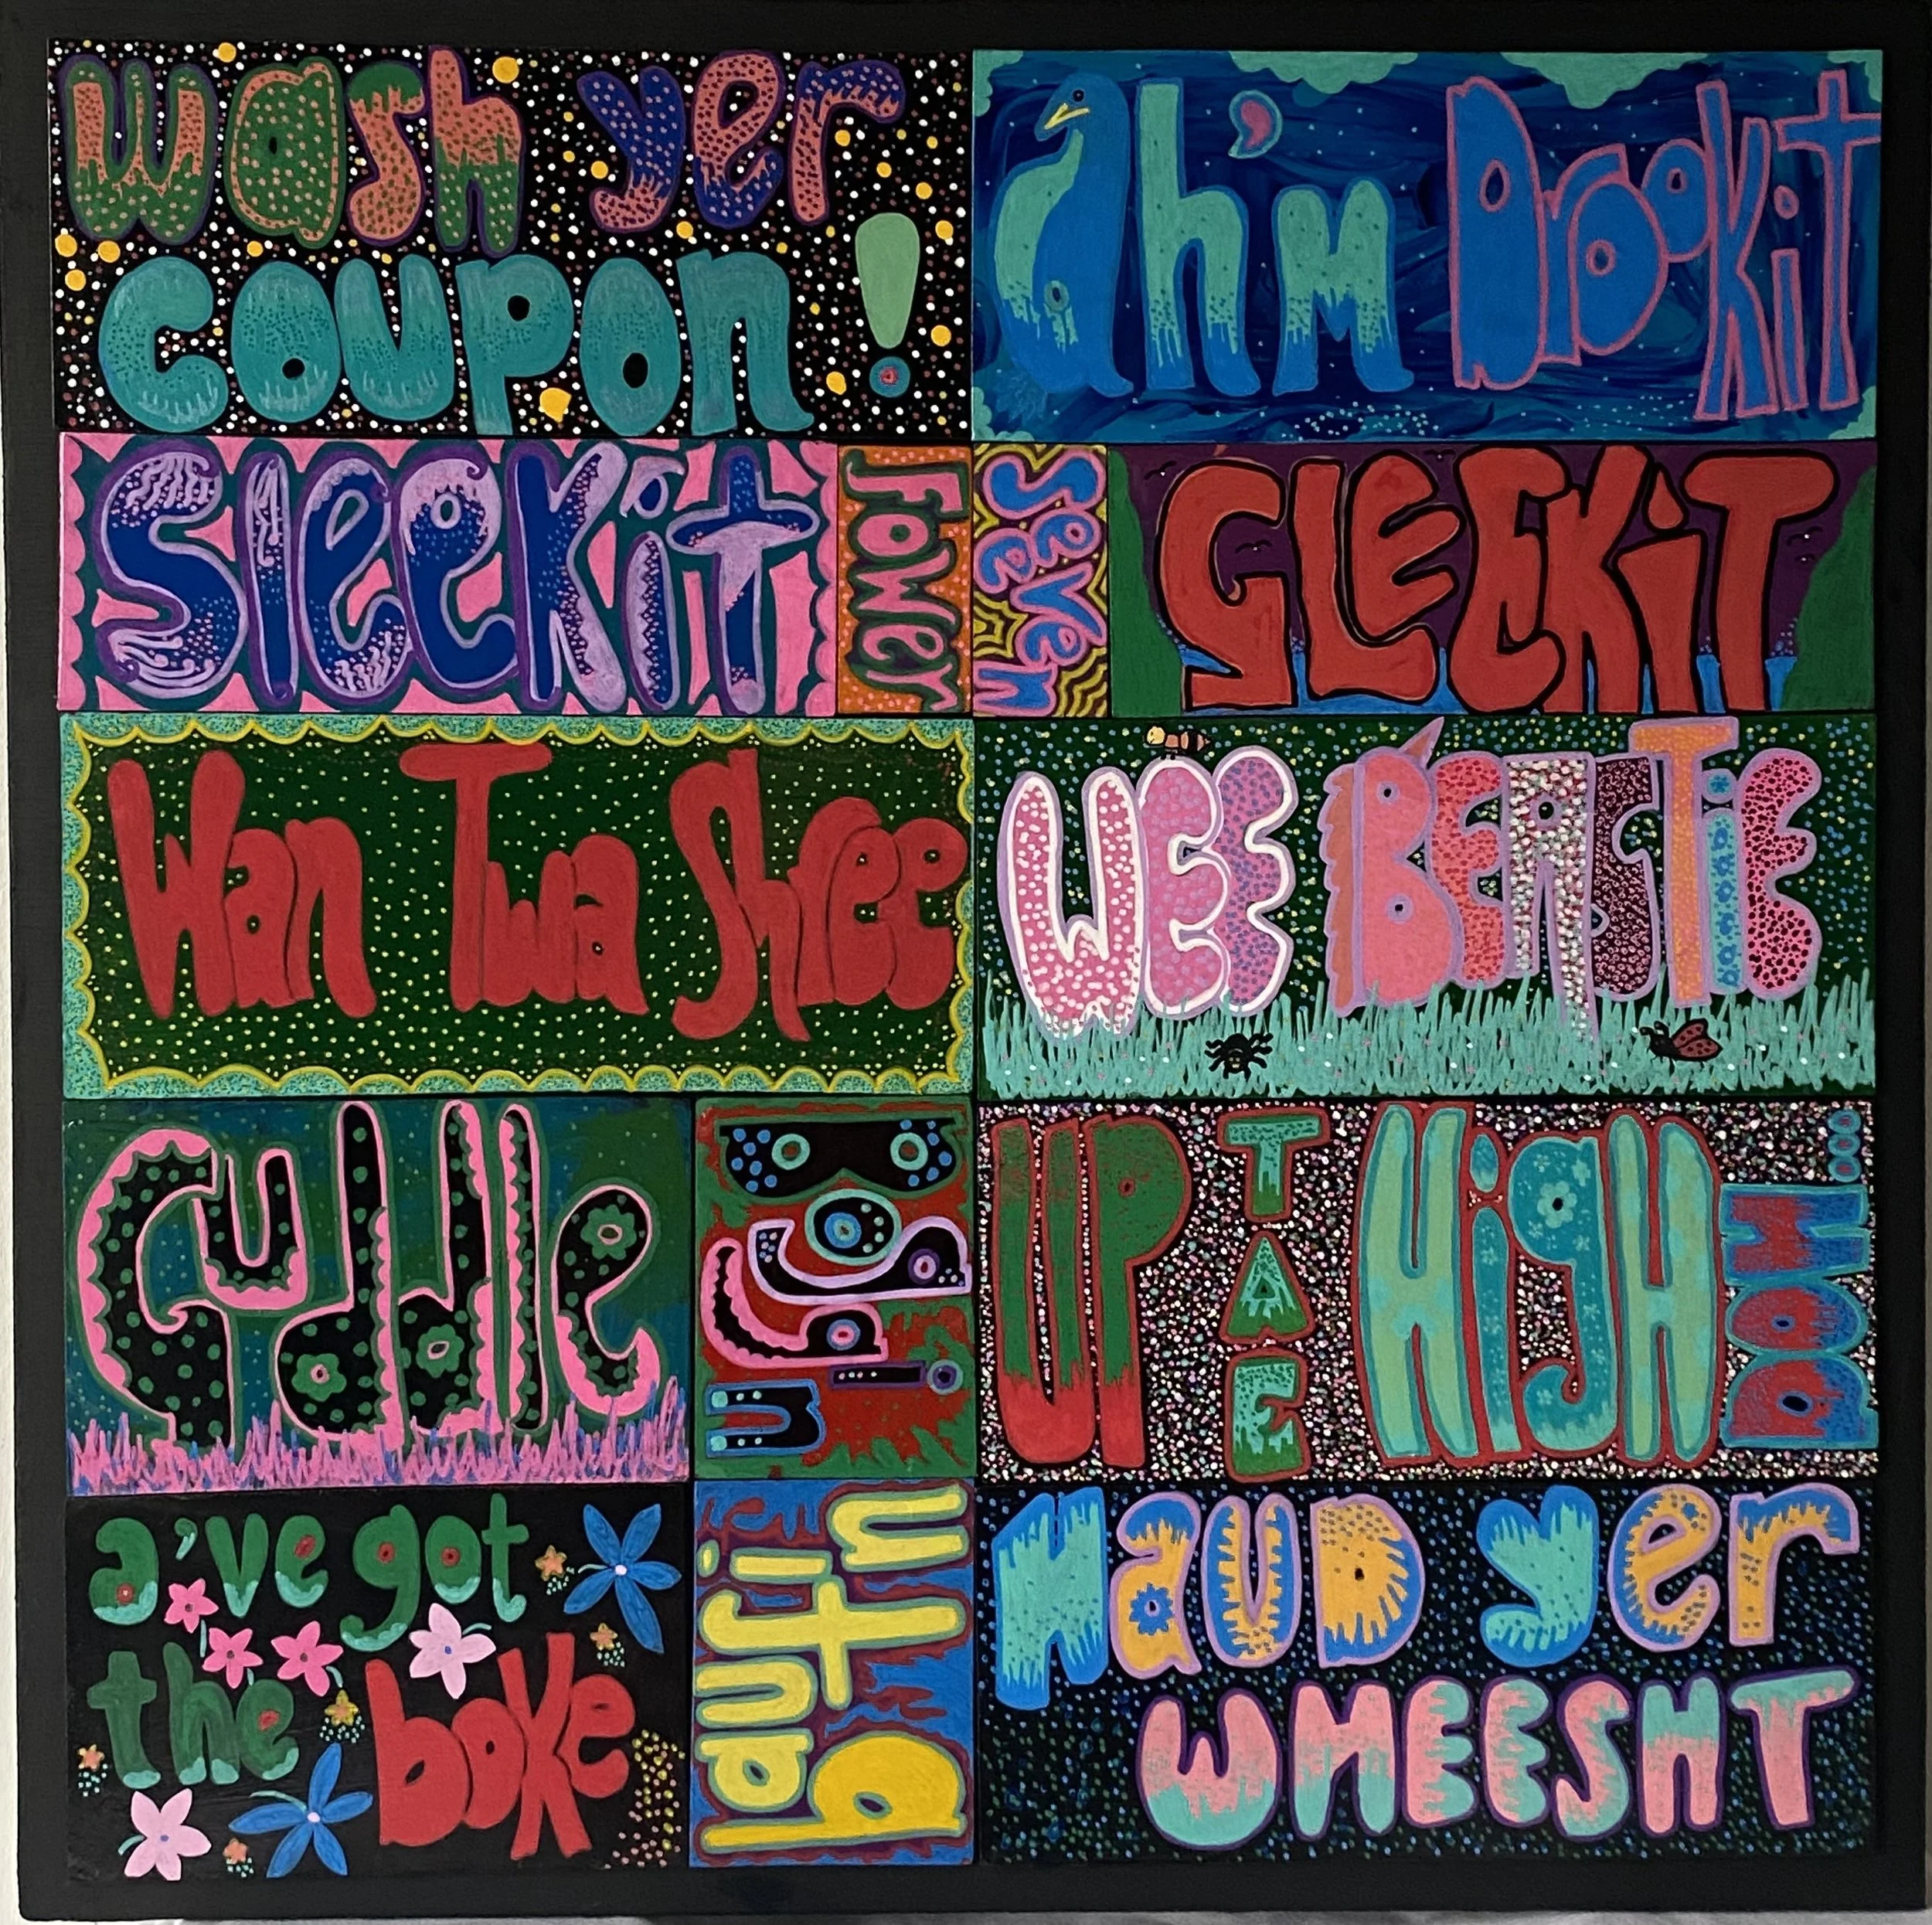 wash yer
coupon!
ah'm Drookit
Sleekit
Fower
Seeven
GLEEKiT
Wan Twa Shree
WEE BEASTiE
Guddle
Boggin
UP TAE HigH DOH...
a've got
the boke
baufin
HaUD yer
WHEESHT